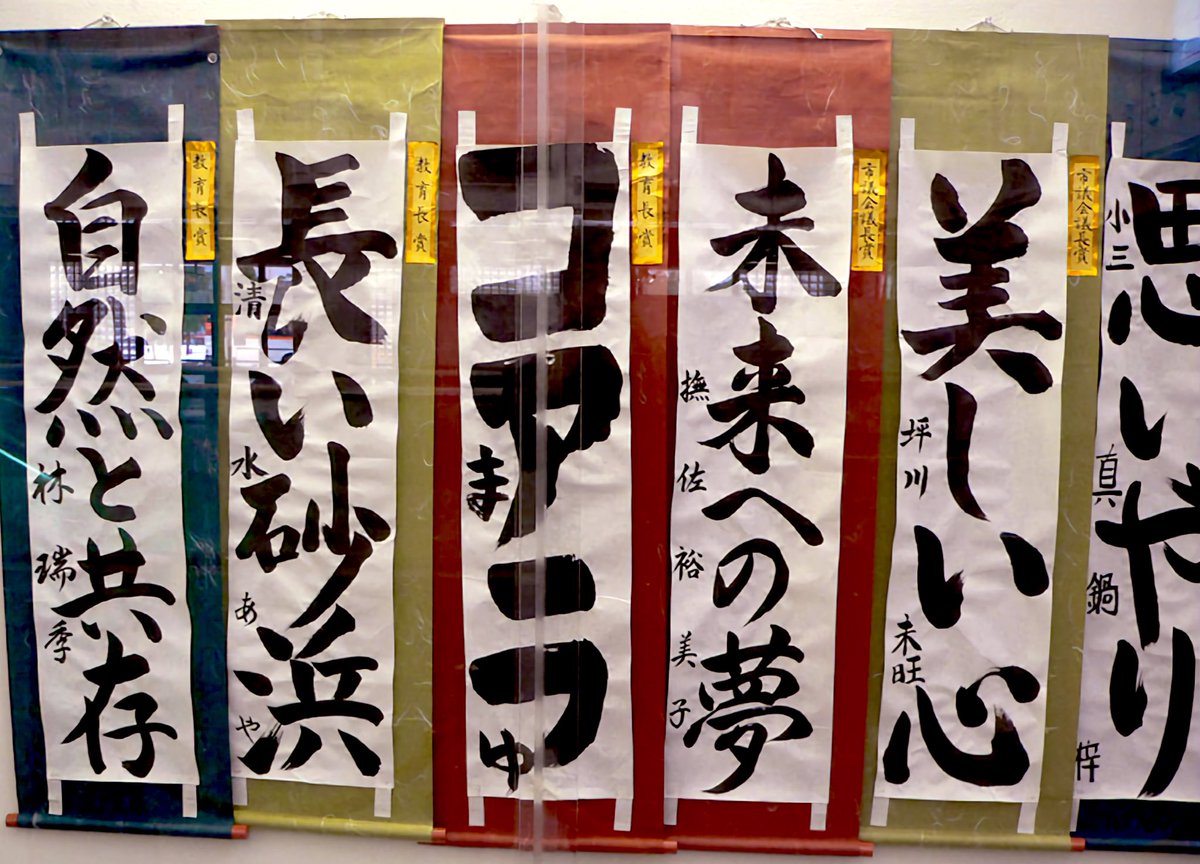 思いやり
小三 真鍋 梓
市議会議長賞
美しい心
坪川 未旺
市議会議長賞
未来への夢
撫佐 裕美子
教育長賞
コアラ
まゆ
教育長賞
長い砂浜
清水 あや
教育長賞
自然と共存
林 瑞季